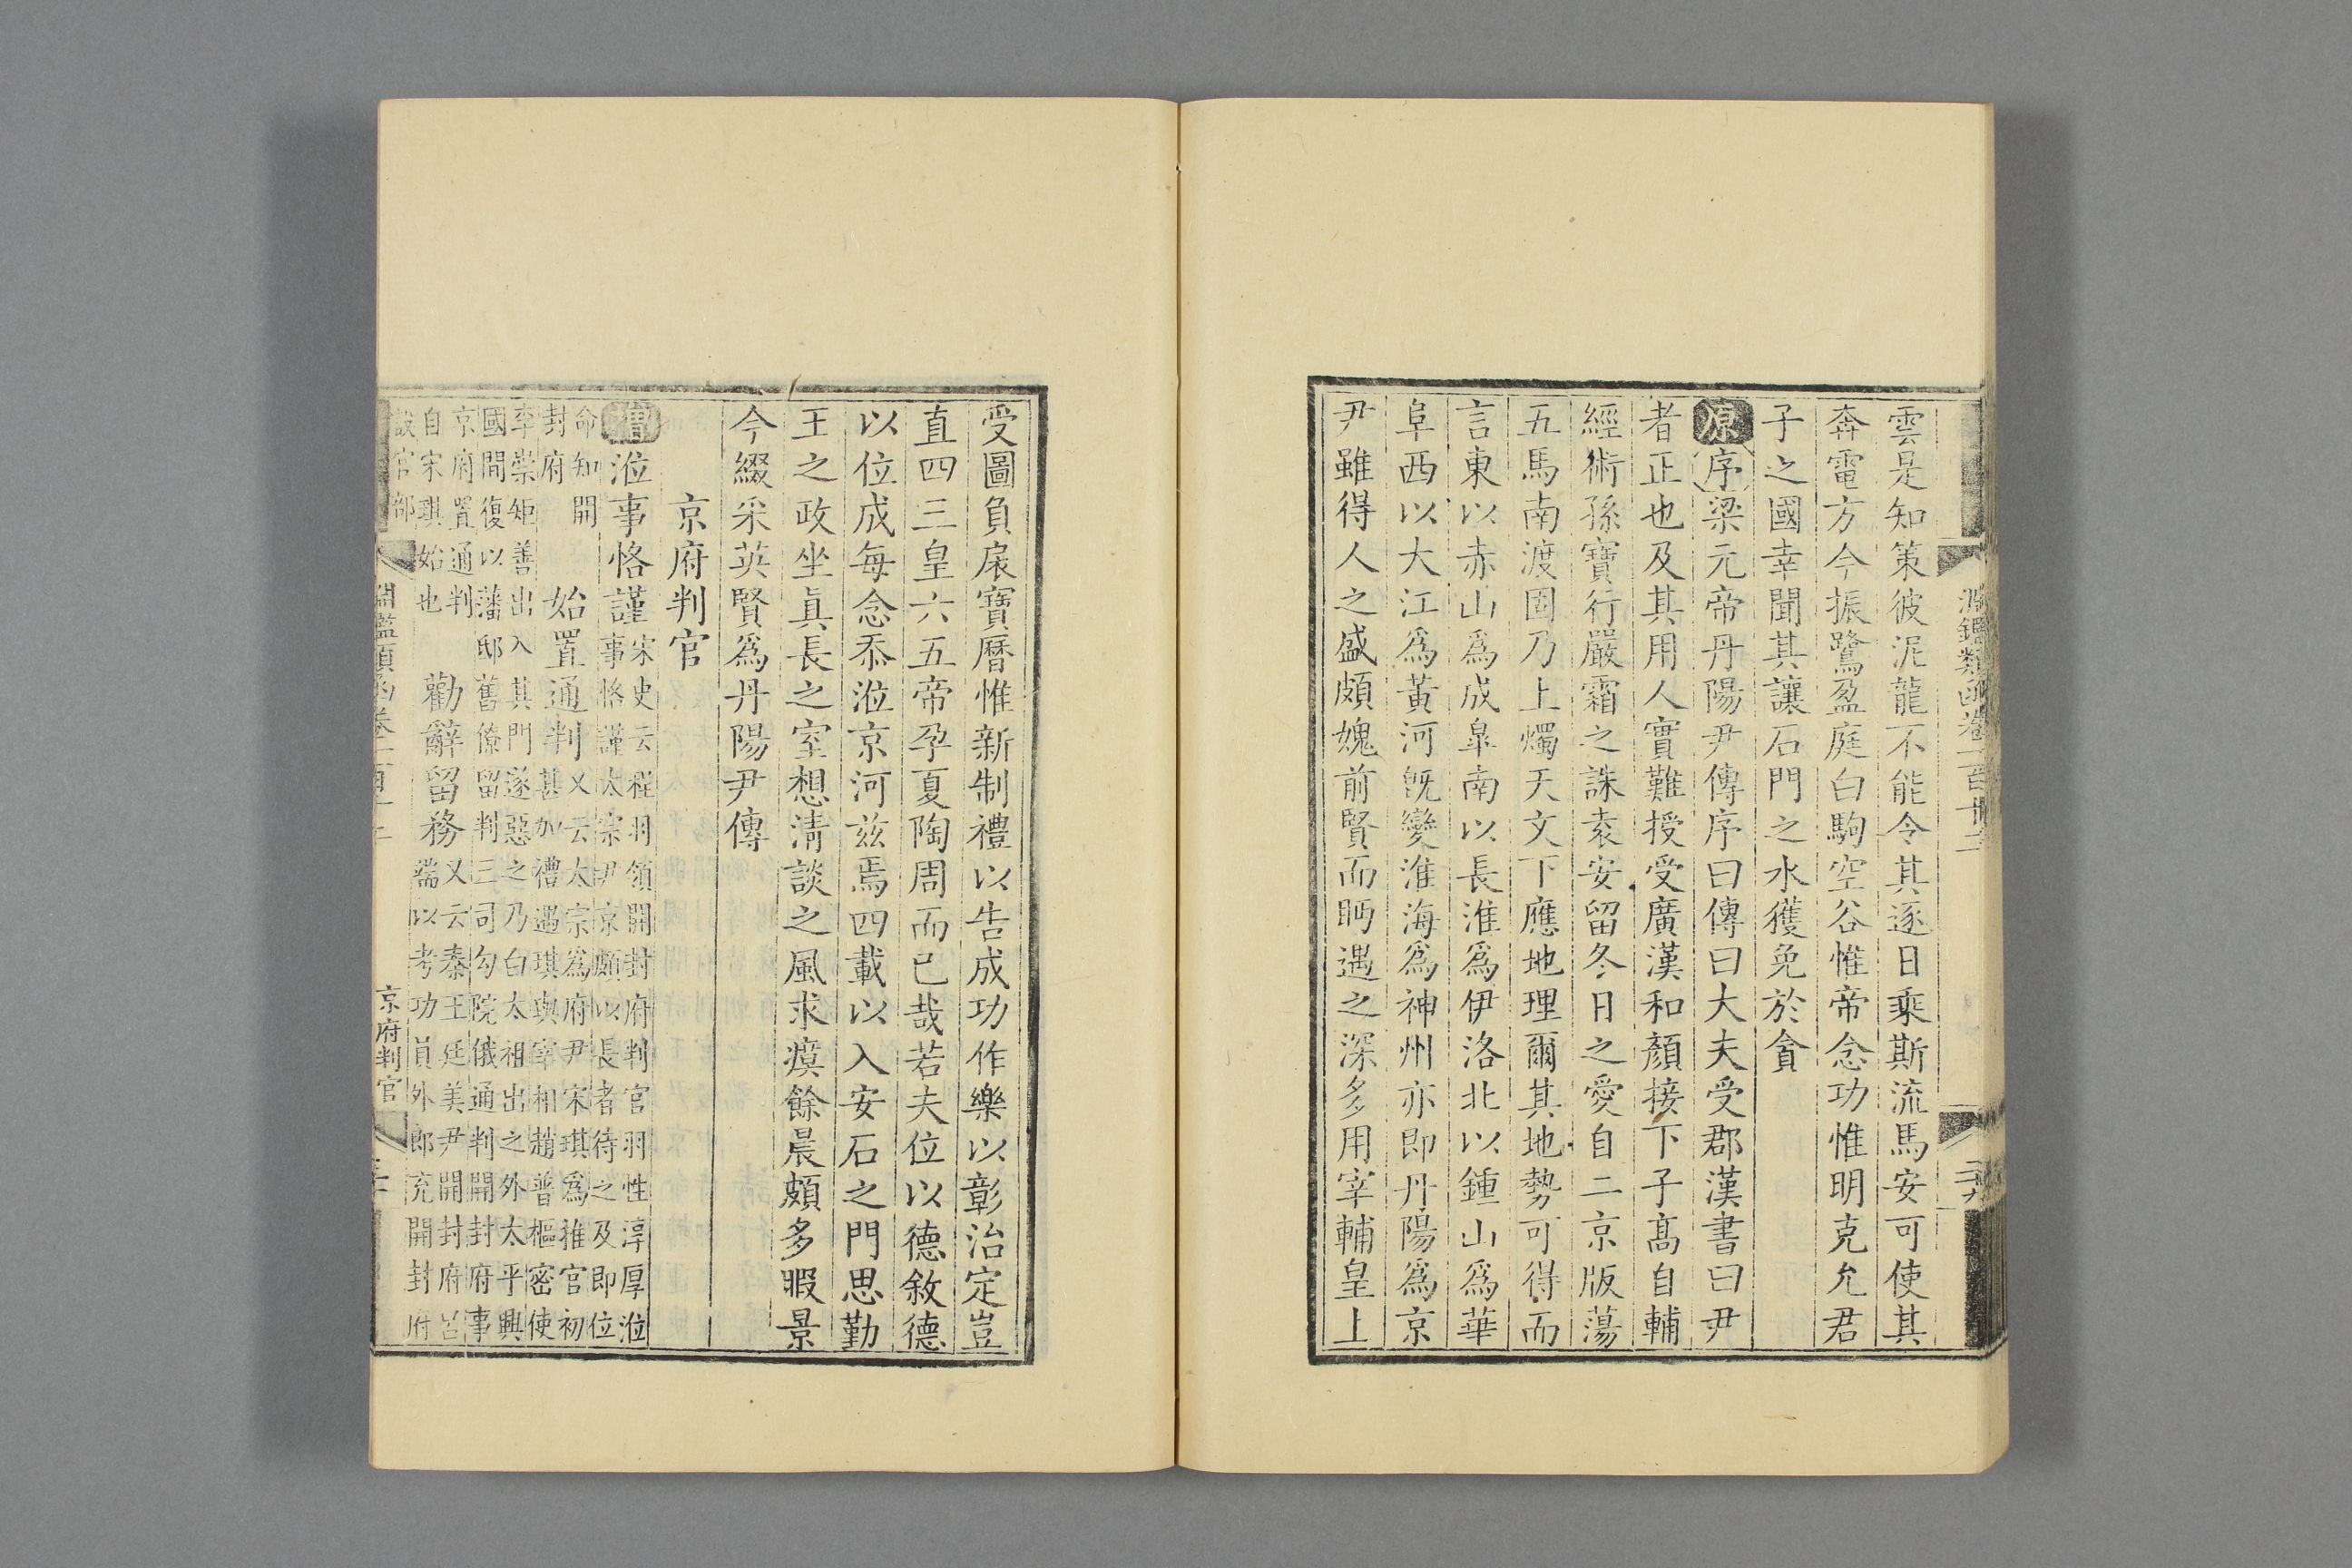 淵鑑類函卷一百十二
二十九
雲是知策彼泥龍不能令其逐日乘斯流馬安可使其
奔電方今振鷺盈庭白駒空谷惟帝念功惟明克允君
子之國幸聞其讓石門之水獲免於貪
原序梁元帝丹陽尹傳序曰傳曰大夫受郡漢書曰尹
者正也及其用人實難授受廣漢和顏接下子高自輔
經術孫寶行嚴霜之誅袁安留冬日之愛自二京版蕩
五馬南渡固乃上燭天文下應地理爾其地勢可得而
言東以赤山爲成皐南以長淮爲伊洛北以鍾山爲華
阜西以大江爲黃河旣變淮海爲神州亦即丹陽爲京
尹雖得人之盛頗媿前賢而眄遇之深多用宰輔皇上
受圖負扆寶曆惟新制禮以告成功作樂以彰治定豈
直四三皇六五帝孕夏陶周而已哉若夫位以德敘德
以位成每念忝涖京河茲焉四載以入安石之門思勤
王之政坐眞長之室想淸談之風求瘼餘晨頗多暇景
今綴采英賢爲丹陽尹傳
京府判官
增涖事恪謹宋史云程羽領開封府判官羽性淳厚涖
事恪謹太宗尹京頗以長者待之及即位
命知開
封府
始置通判又云太宗爲府尹宋琪爲推官初
甚加禮遇琪與宰相趙普樞密使
李崇矩善出入其門遂惡之乃白太祖出之外太平興
國間復以藩邸舊僚留判三司勾院俄通判開封府事
京府置通判
自宋琪始也
勸辭留務又云秦王廷美尹開封府召
端以考功員外郎充開封府
判官部
淵鑑類函卷一百十二
京府判官
三十